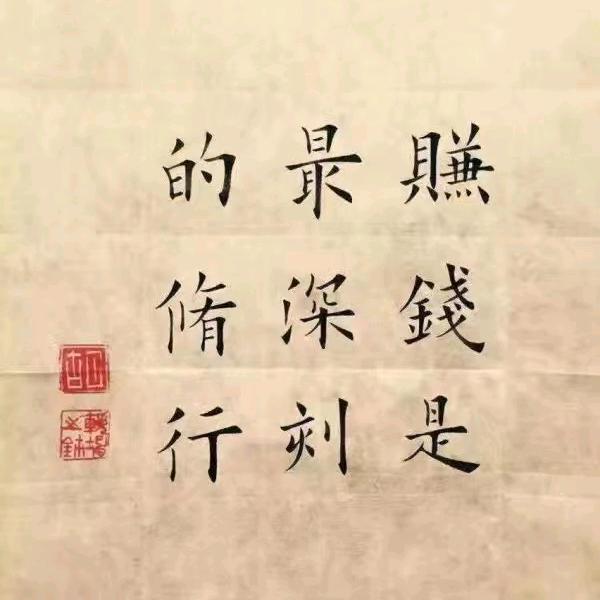 賺錢是
最深刻
的脩行